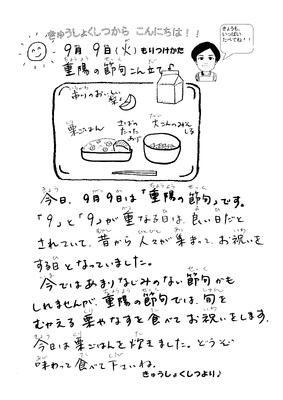 きゅうしょくしつから こんにちは！！
きょうも、
いっぱい
たべてね！！
9月 9日(火) もりつけかた
重陽の節句こん立て
栗ごはん
さばの
たった
あげ
だいこんのみそしる
今日、9月9日は「重陽の節句」です。
「9」と「9」が重なる日は、良い日だと
されていて、昔から人々が集まって、お祝いを
する日となっていました。
今ではあまりなじみのない節句かも
しれませんが、重陽の節句では、旬を
むかえる栗やなすを食べてお祝いをします。
今日は栗ごはんを炊きました。どうぞ
味わって食べて下さいね。
きゅうしょくしつより♪